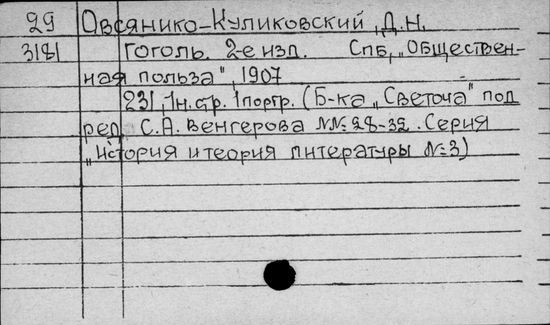 29 Овсянико-Куликовский, Д.Н.
3181 Гоголь. 2-е изд. Спб, „Обществен-
ная польза", 1907
231, 1н. стр. 1портр. (Б-ка „Светоча" под
ред. С.А. Венгерова №№28-32. Серия
„История и теория литературы №3)